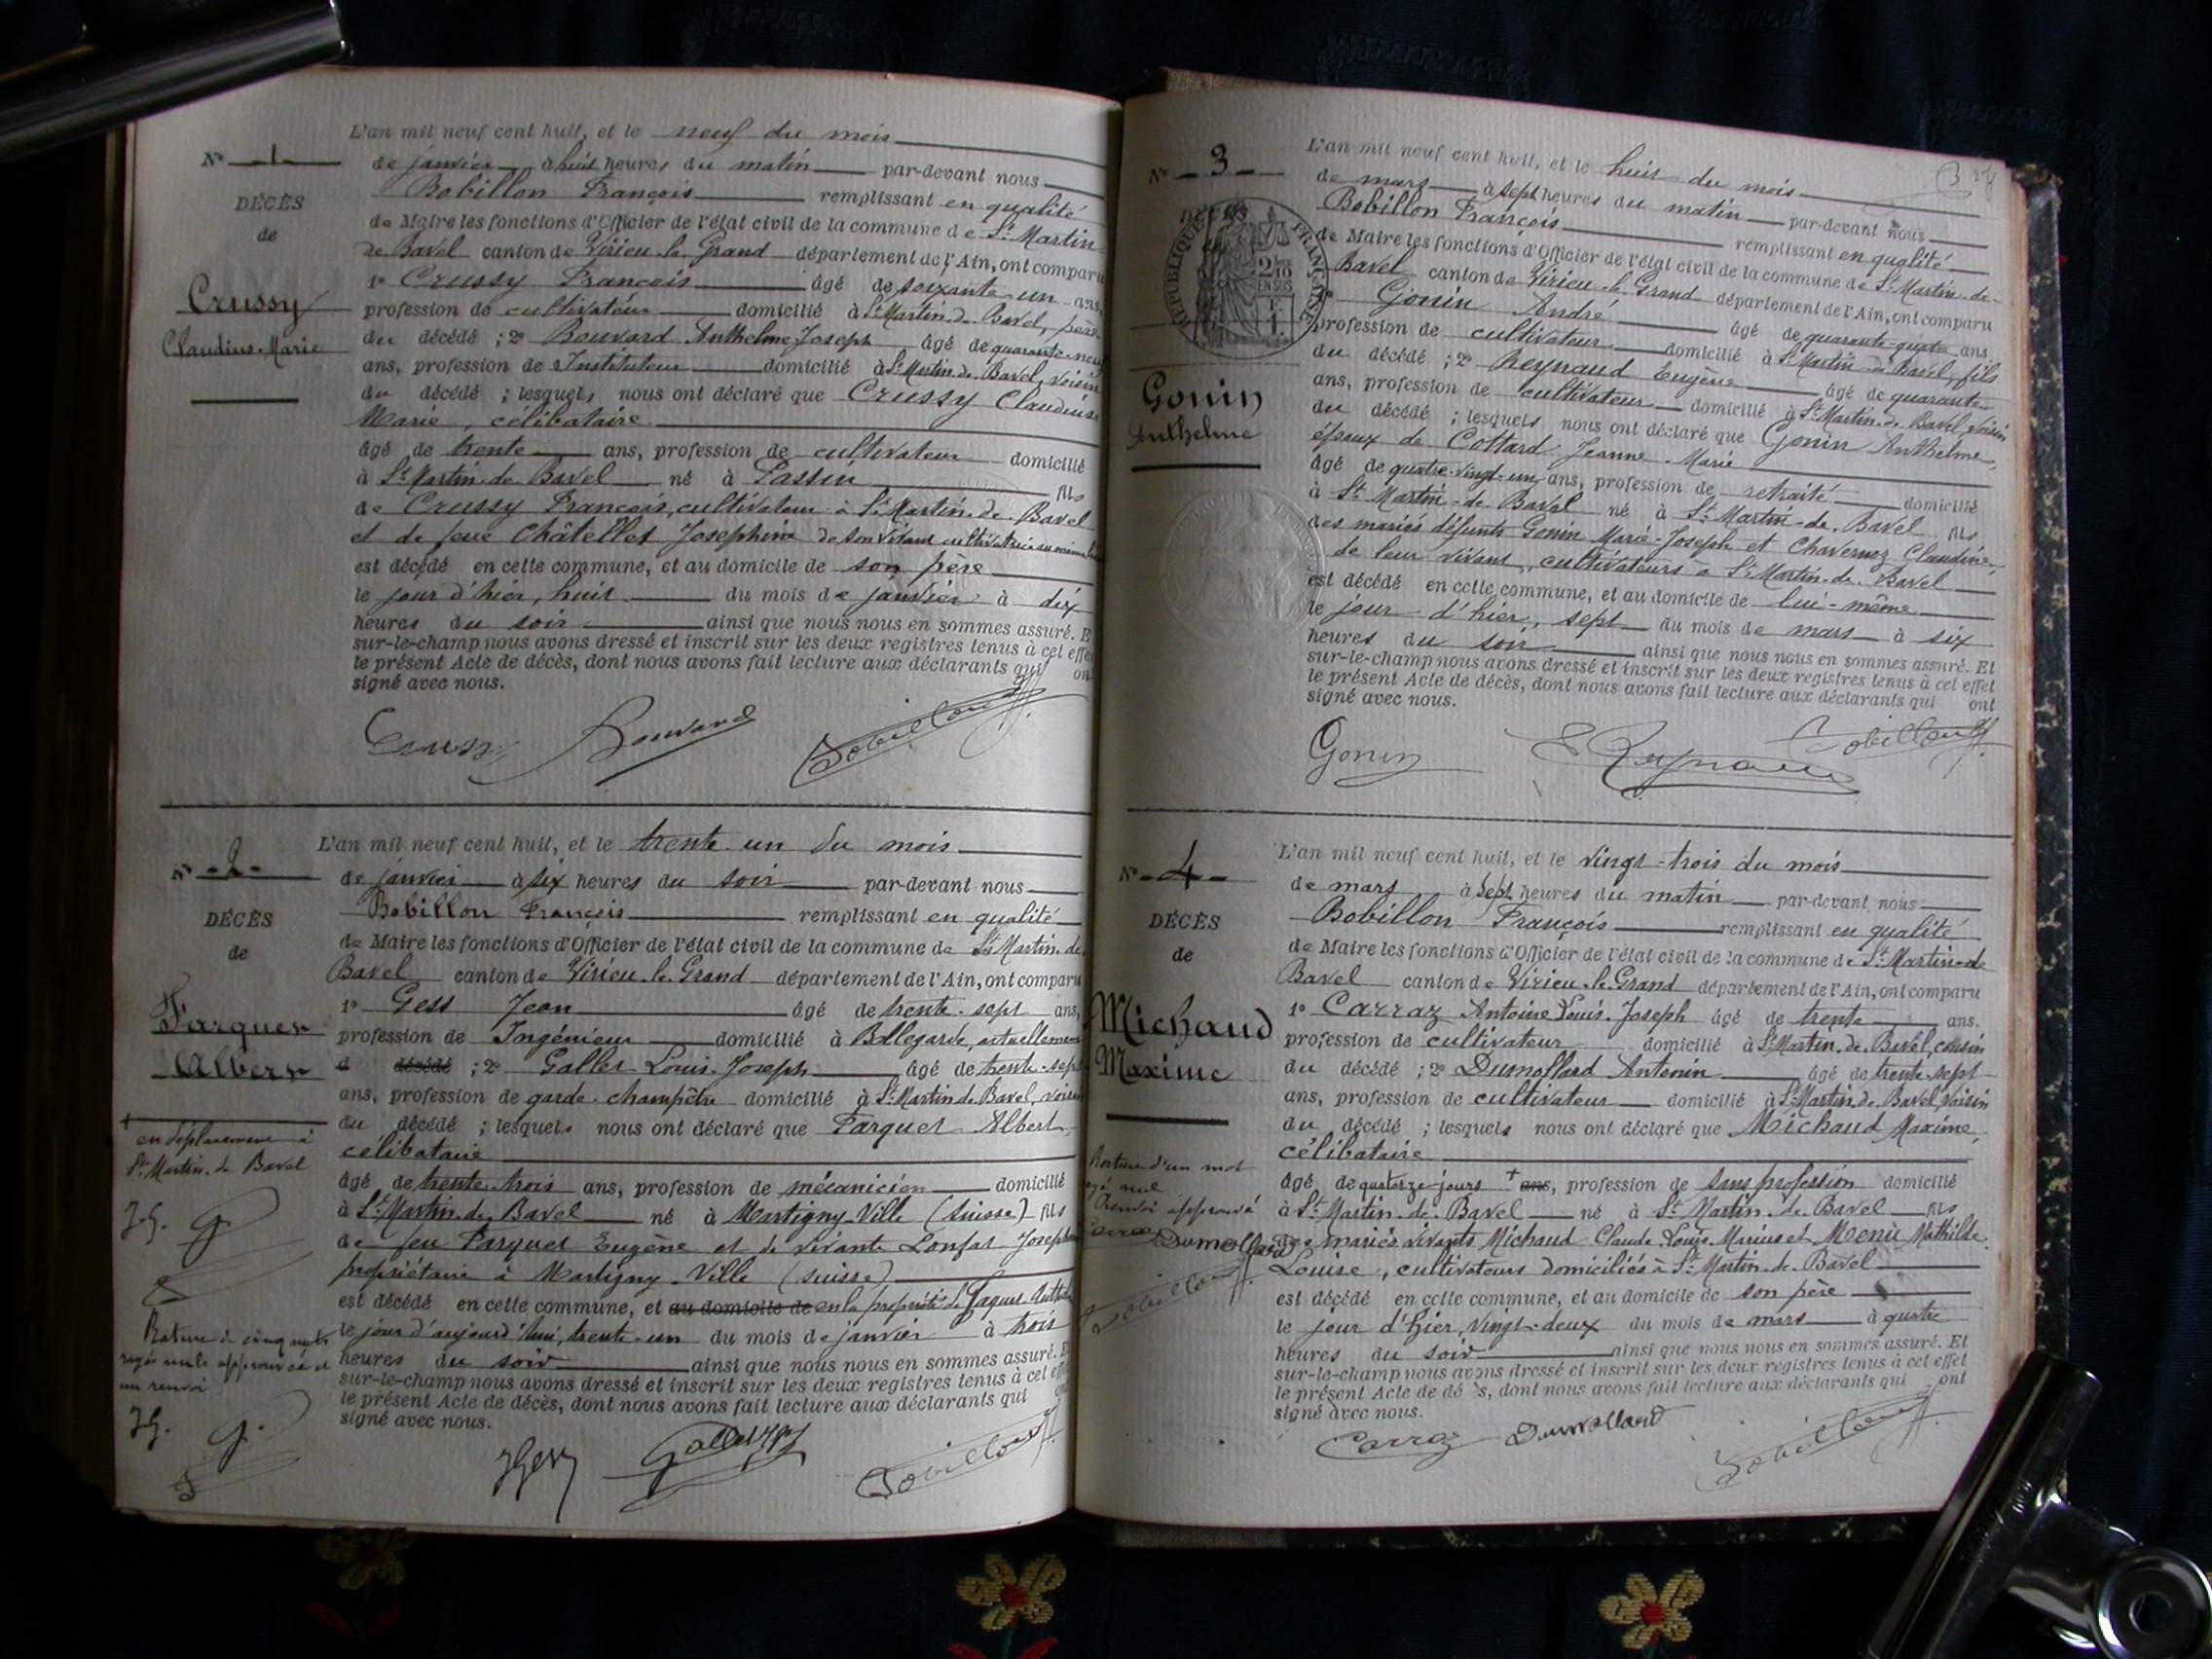 N° 1
DÉCÈS
de
Crussy
Claudius-Marie
L'an mil neuf cent huit, et le neuf du mois
de janvier à huit heures du matin par-devant nous
Bobillon François remplissant en qualité
de Maire les fonctions d'Officier de l'état civil de la commune de St Martin
de Bavel canton de Virieu-le-Grand département de l'Ain, ont comparu
1° Crussy François âgé de soixante-un ans,
profession de cultivateur domicilié à St Martin-de-Bavel, père
du décédé ; 2° Bouvard Anthelme Joseph âgé de quarante-neuf
ans, profession de Instituteur domicilié à St Martin-de-Bavel, voisin
du décédé ; lesquels nous ont déclaré que Crussy Claudius
Marie, célibataire
âgé de trente ans, profession de cultivateur domicilié
à St Martin-de-Bavel né à Passin fils
de Crussy François, cultivateur à St Martin-de-Bavel
et de feue Châtellet Josephine de son vivant cultivatrice au même lieu
est décédé en cette commune, et au domicile de son père
le jour d'hier, huit du mois de janvier à dix
heures du soir ainsi que nous nous en sommes assuré. Et
sur-le-champ nous avons dressé et inscrit sur les deux registres tenus à cet effet
le présent Acte de décès, dont nous avons fait lecture aux déclarants qui ont
signé avec nous.
Crussy Bouvard Bobillon
N° 2
DÉCÈS
de
Farquet
Albert
L'an mil neuf cent huit, et le trente-un du mois
de janvier à six heures du soir par-devant nous
Bobillon François remplissant en qualité
de Maire les fonctions d'Officier de l'état civil de la commune de St Martin-de
Bavel canton de Virieu-le-Grand département de l'Ain, ont comparu
1° Gess Jean âgé de trente-sept ans,
profession de Ingénieur domicilié à Bellegarde, actuellement
décédé ; 2° Gallet Louis-Joseph âgé de trente-sept
ans, profession de garde-champêtre domicilié à St Martin-de-Bavel, voisin
du décédé ; lesquels nous ont déclaré que Farquet Albert,
célibataire
âgé de trente-trois ans, profession de mécanicien domicilié
à St Martin-de-Bavel né à Martigny-Ville (Suisse) fils
de feu Farquet Eugène et de vivante Lonfat Joseph
propriétaire à Martigny-Ville (Suisse)
est décédé en cette commune, et au domicile de en la propriété de
le jour d'aujourd'hui, trente-un du mois de janvier à trois
heures du soir ainsi que nous nous en sommes assuré. Et
sur-le-champ nous avons dressé et inscrit sur les deux registres tenus à cet effet
le présent Acte de décès, dont nous avons fait lecture aux déclarants qui ont
signé avec nous.
en déplacement à
St Martin-de Bavel
J G. G
Rature de cinq mots
rayés nuls approuvée et
un renvoi
J G. G.
JGess Gallet Bobillon
N° 3
DÉCÈS
RÉPUBLIQUE FRANÇAISE
2/10 EN SUS
Gonin
Anthelme
L'an mil neuf cent huit, et le huit du mois
de mars à sept heures du matin par-devant nous
Bobillon François remplissant en qualité
de Maire les fonctions d'Officier de l'état civil de la commune de St Martin-de-
Bavel canton de Virieu-le-Grand département de l'Ain, ont comparu
Gonin André âgé de quarante-quatre ans
profession de cultivateur domicilié à St Martin-de-Bavel, fils
du décédé ; 2° Reynaud Eugène âgé de quarante
ans, profession de cultivateur domicilié à St Martin-de-Bavel, voisin
du décédé ; lesquels nous ont déclaré que Gonin Anthelme,
époux de Cottard Jeanne-Marie
âgé de quatre-vingt-un ans, profession de retraité domicilié
à St Martin-de-Bavel né à St Martin-de-Bavel fils
des mariés défunts Gonin Marie-Joseph et Chavernoz Claudine,
de leur vivant, cultivateurs à St Martin-de-Bavel
est décédé en cette commune, et au domicile de lui-même
le jour d'hier, sept du mois de mars à six
heures du soir ainsi que nous nous en sommes assuré. Et
sur-le-champ nous avons dressé et inscrit sur les deux registres tenus à cet effet
le présent Acte de décès, dont nous avons fait lecture aux déclarants qui ont
signé avec nous.
Gonin E Reynaud Bobillon
N° 4
DÉCÈS
de
Michaud
Maxime
L'an mil neuf cent huit, et le vingt-trois du mois
de mars à sept heures du matin par-devant nous
Bobillon François remplissant en qualité
de Maire les fonctions d'Officier de l'état civil de la commune de St Martin-de
Bavel canton de Virieu-le-Grand département de l'Ain, ont comparu
1° Carraz Antoine Louis-Joseph âgé de trente ans.
profession de cultivateur domicilié à St Martin-de-Bavel, cousin
du décédé ; 2° Dumollard Antonin âgé de trente-sept
ans, profession de cultivateur domicilié à St Martin-de-Bavel, voisin
du décédé ; lesquels nous ont déclaré que Michaud Maxime,
célibataire
âgé de quatorze jours + ans, profession de sans profession domicilié
à St Martin-de-Bavel né à St Martin-de-Bavel fils
des mariés vivants Michaud Claude-Louis-Marius et Menu Mathilde
Louise, cultivateurs domiciliés à St Martin-de-Bavel
est décédé en cette commune, et au domicile de son père
le jour d'hier, vingt-deux du mois de mars à quatre
heures du soir ainsi que nous nous en sommes assuré. Et
sur-le-champ nous avons dressé et inscrit sur les deux registres tenus à cet effet
le présent Acte de décès, dont nous avons fait lecture aux déclarants qui ont
signé avec nous.
Rature d'un mot
rayé nul
Renvoi approuvé
Carraz Dumollard
Bobillon
Carraz Dumollard Bobillon